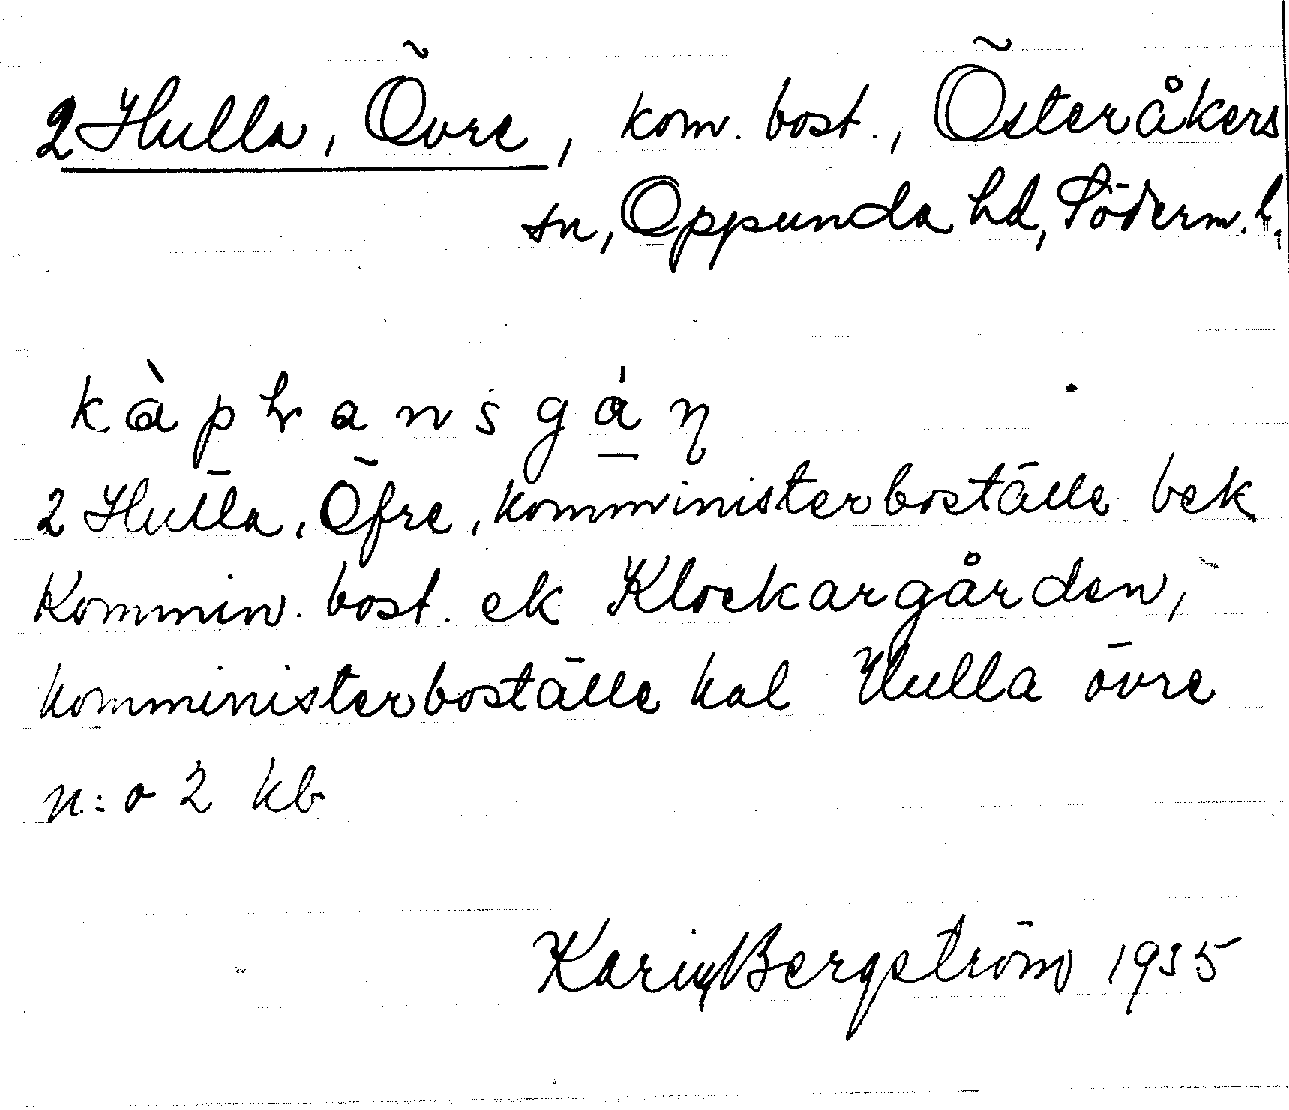 2 Hulla, Övre, kom. bost., Österåkers
sn, Oppunda hd, Söderm. l.
kàplansgáṇ
2 Hulla, Öfre, komministerboställe bek
Kommin. bost. ek Klockargården,
komministerboställe kal Hulla övre
n:o 2 kb
Karin Bergström 1935